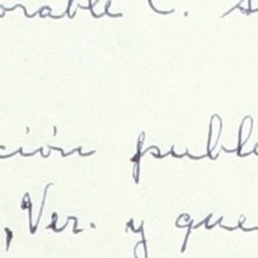 orable C. s
ción públ
, Ver. y que